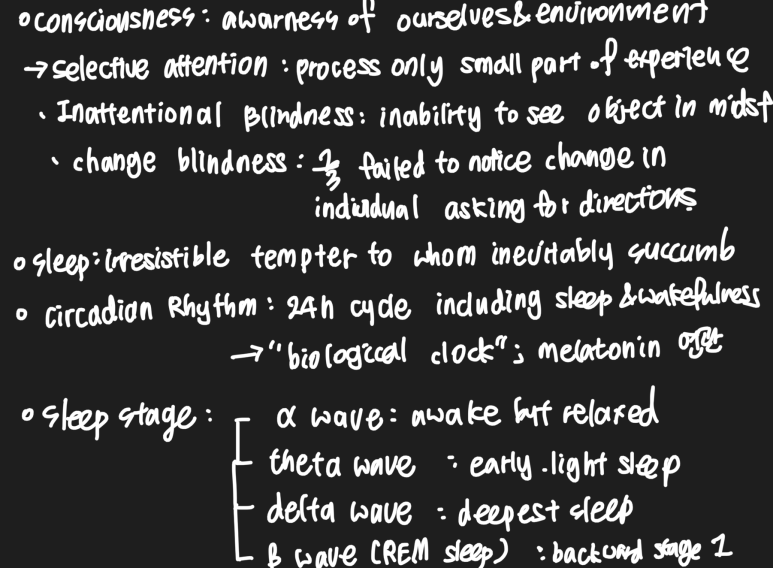 o consciousness: awarness of ourselves & environment
→ selective attention : process only small part of experience
· Inattentional Blindness: inability to see object in midst
· change blindness : 2/3 failed to notice change in
individual asking for directions
o sleep: irresistible tempter to whom inevitably succumb
o circadian Rhythm : 24h cycle including sleep & wakefulness
→ "biological clock" ; melatonin
o sleep stage : α wave : awake but relaxed
theta wave : early.light sleep
delta wave : deepest sleep
β wave (REM sleep) : backward stage 1